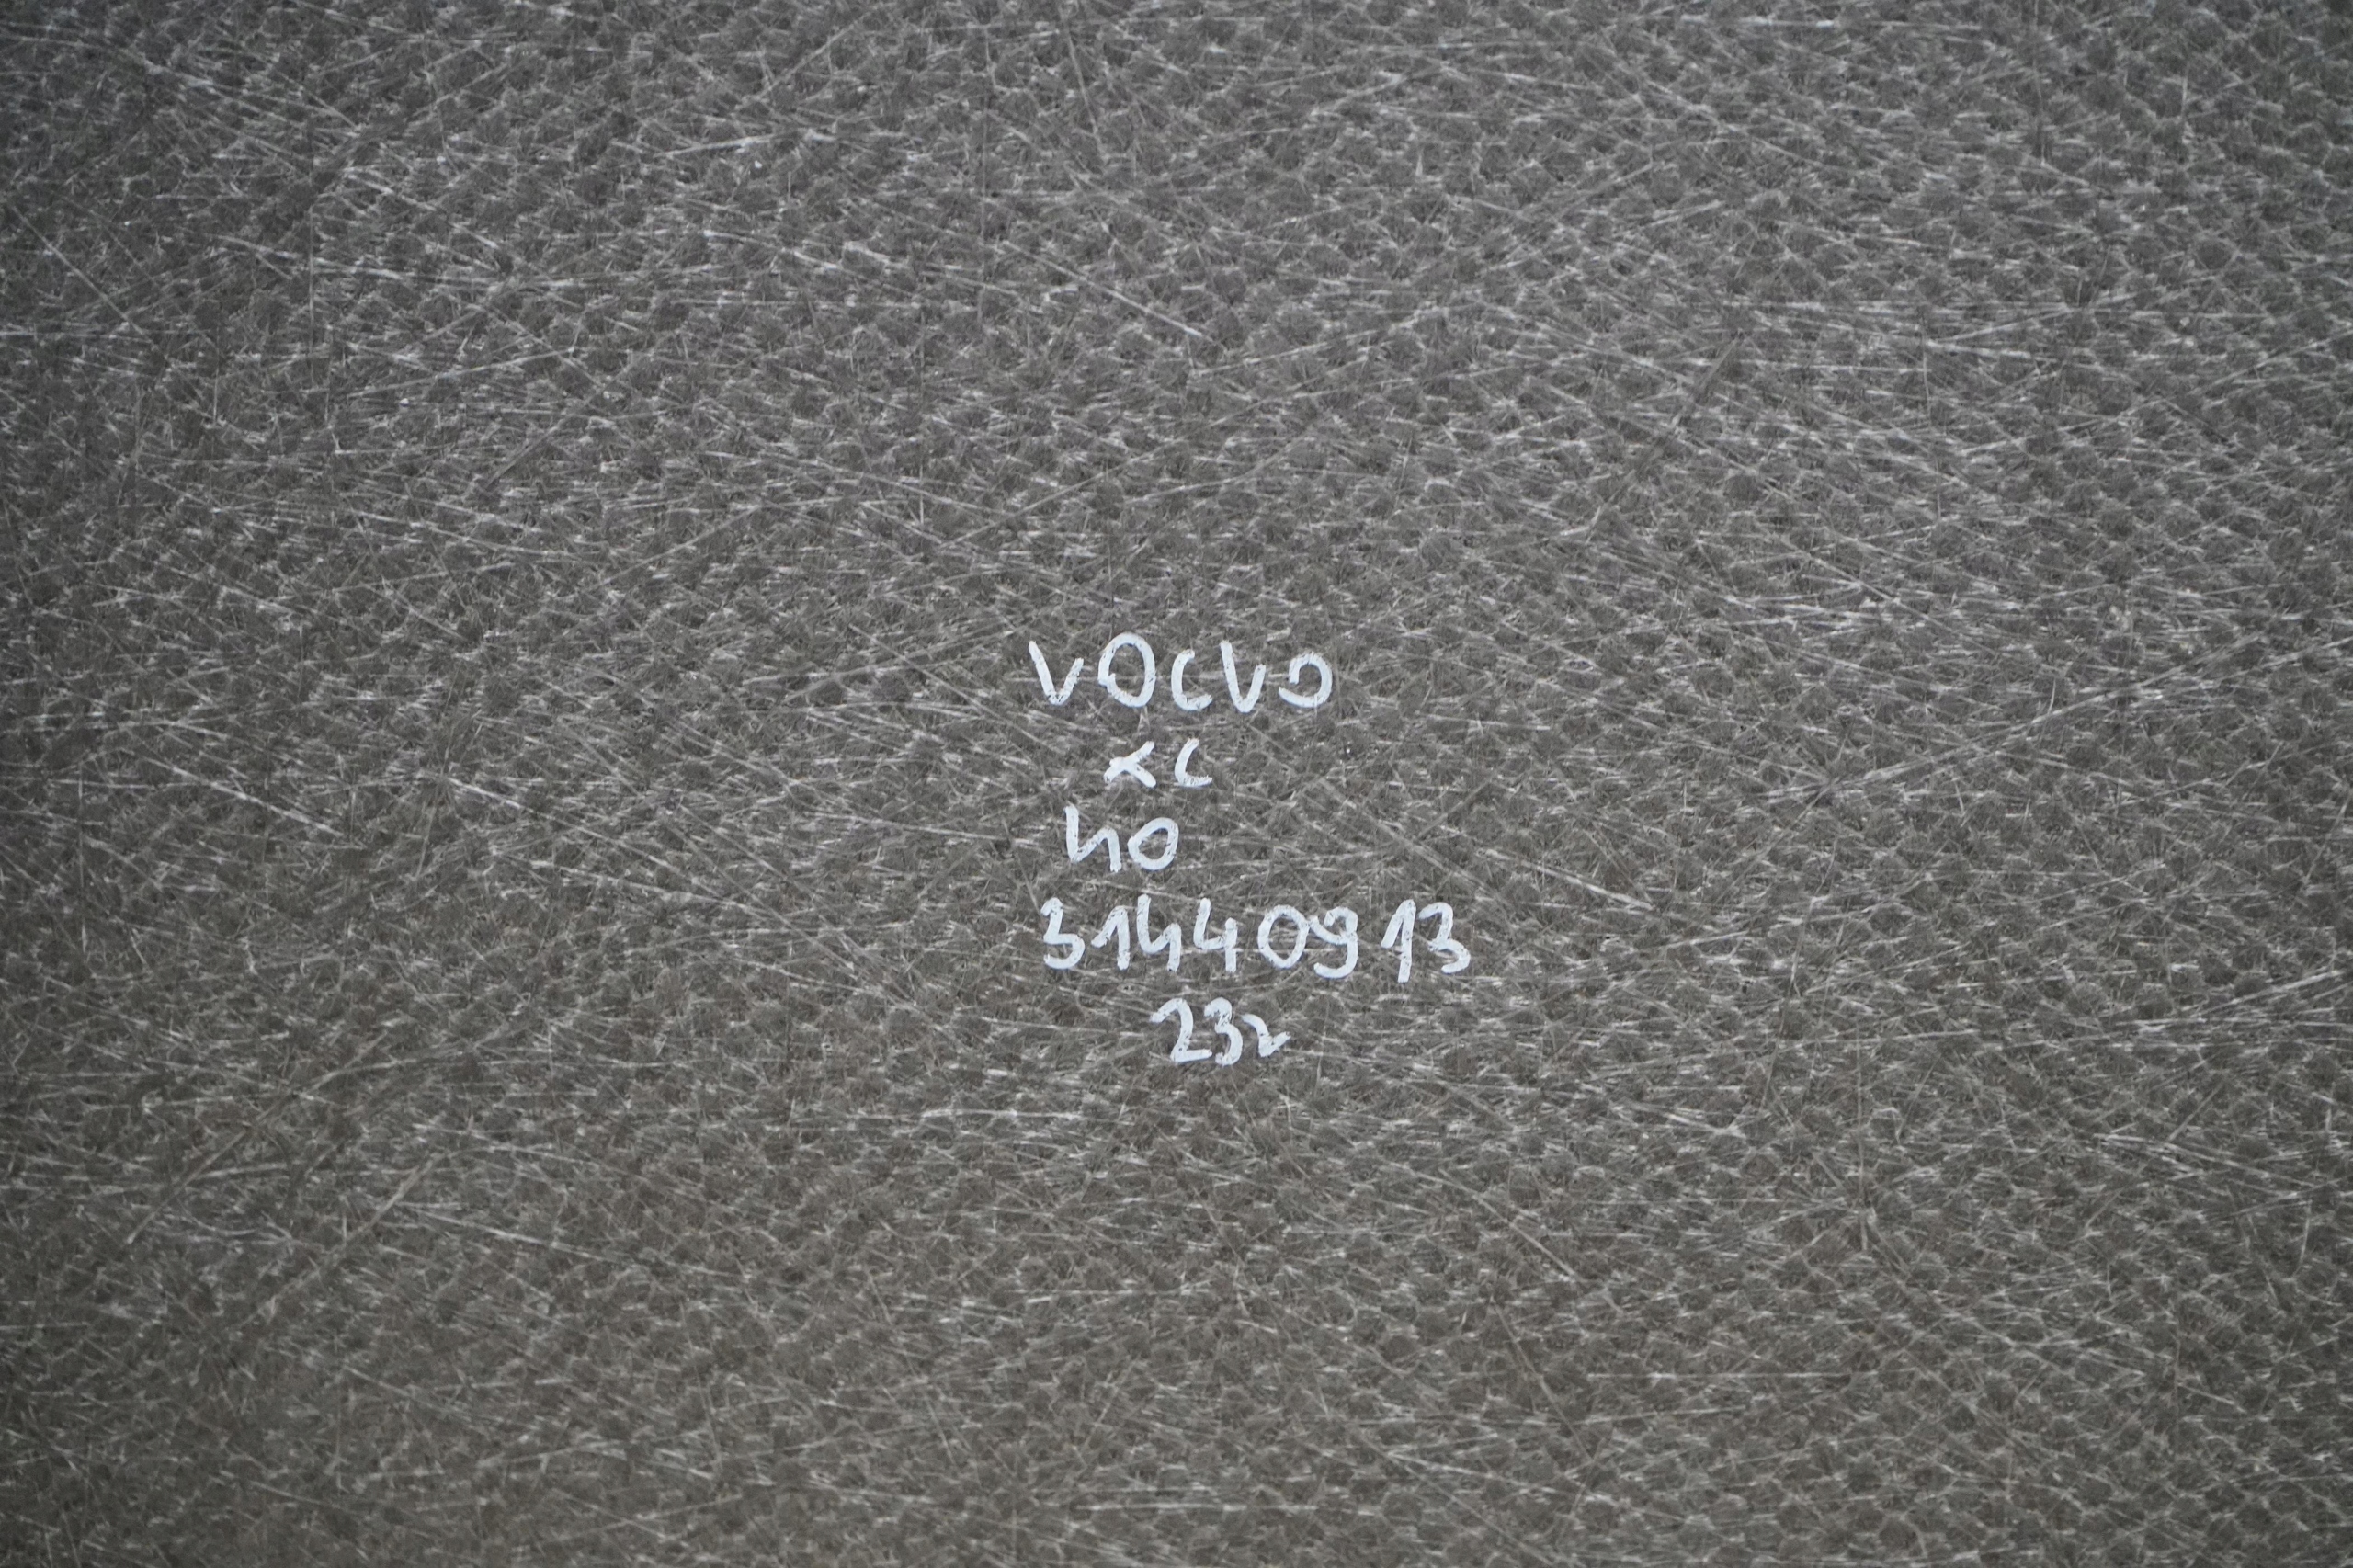 VOLVO
XC
40
31440913
23r